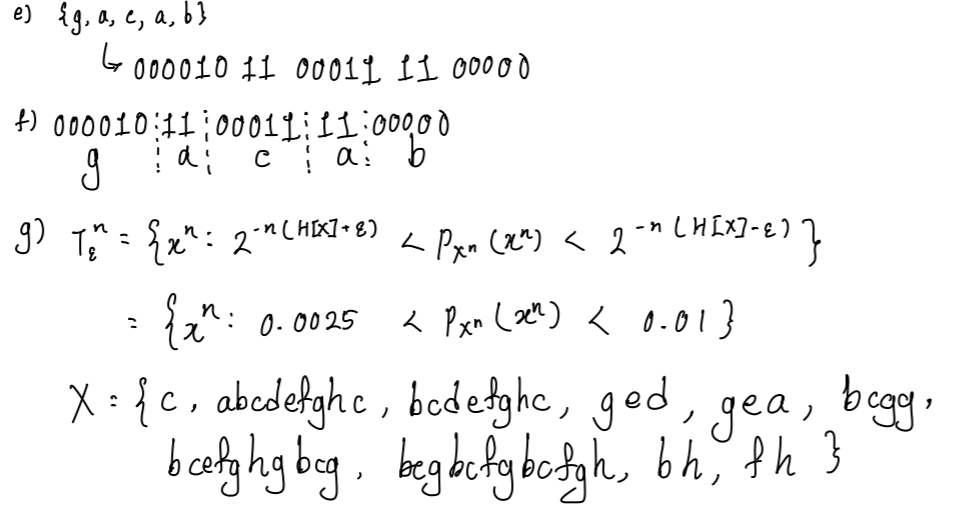 e) {g, a, c, a, b}
↳ 000010 11 00011 11 00000
f) 000010 ¦ 11 ¦ 00011 ¦ 11 ¦ 00000
g ¦ a ¦ c ¦ a ¦ b
g) T_ε^n = {x^n : 2^{-n(H[X]+ε)} < P_{X^n}(x^n) < 2^{-n(H[X]-ε)}}
= {x^n : 0.0025 < P_{X^n}(x^n) < 0.01}
X = {c, abcdefghc, bcdefghc, ged, gea, bcgg,
bcefghgbcg, bcgbcfgbcfgh, bh, fh}